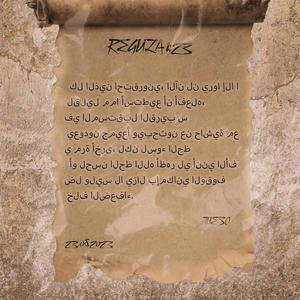 كل الذين احتقروني، الآن لن يروا إلا ا
لقليل مما أستطيع أن أفعله،
في المستقبل القريب س
يعودون جميعًا ويبحثون عن حاشية مع
ي مرة أخرى، لكن لسوء الحظ
أو لحسن الحظ الله أظهر لي أنني الأف
ضل وليس لا يزال بإمكاني الوقوف
خلف الضعفاء.
23.08.2023